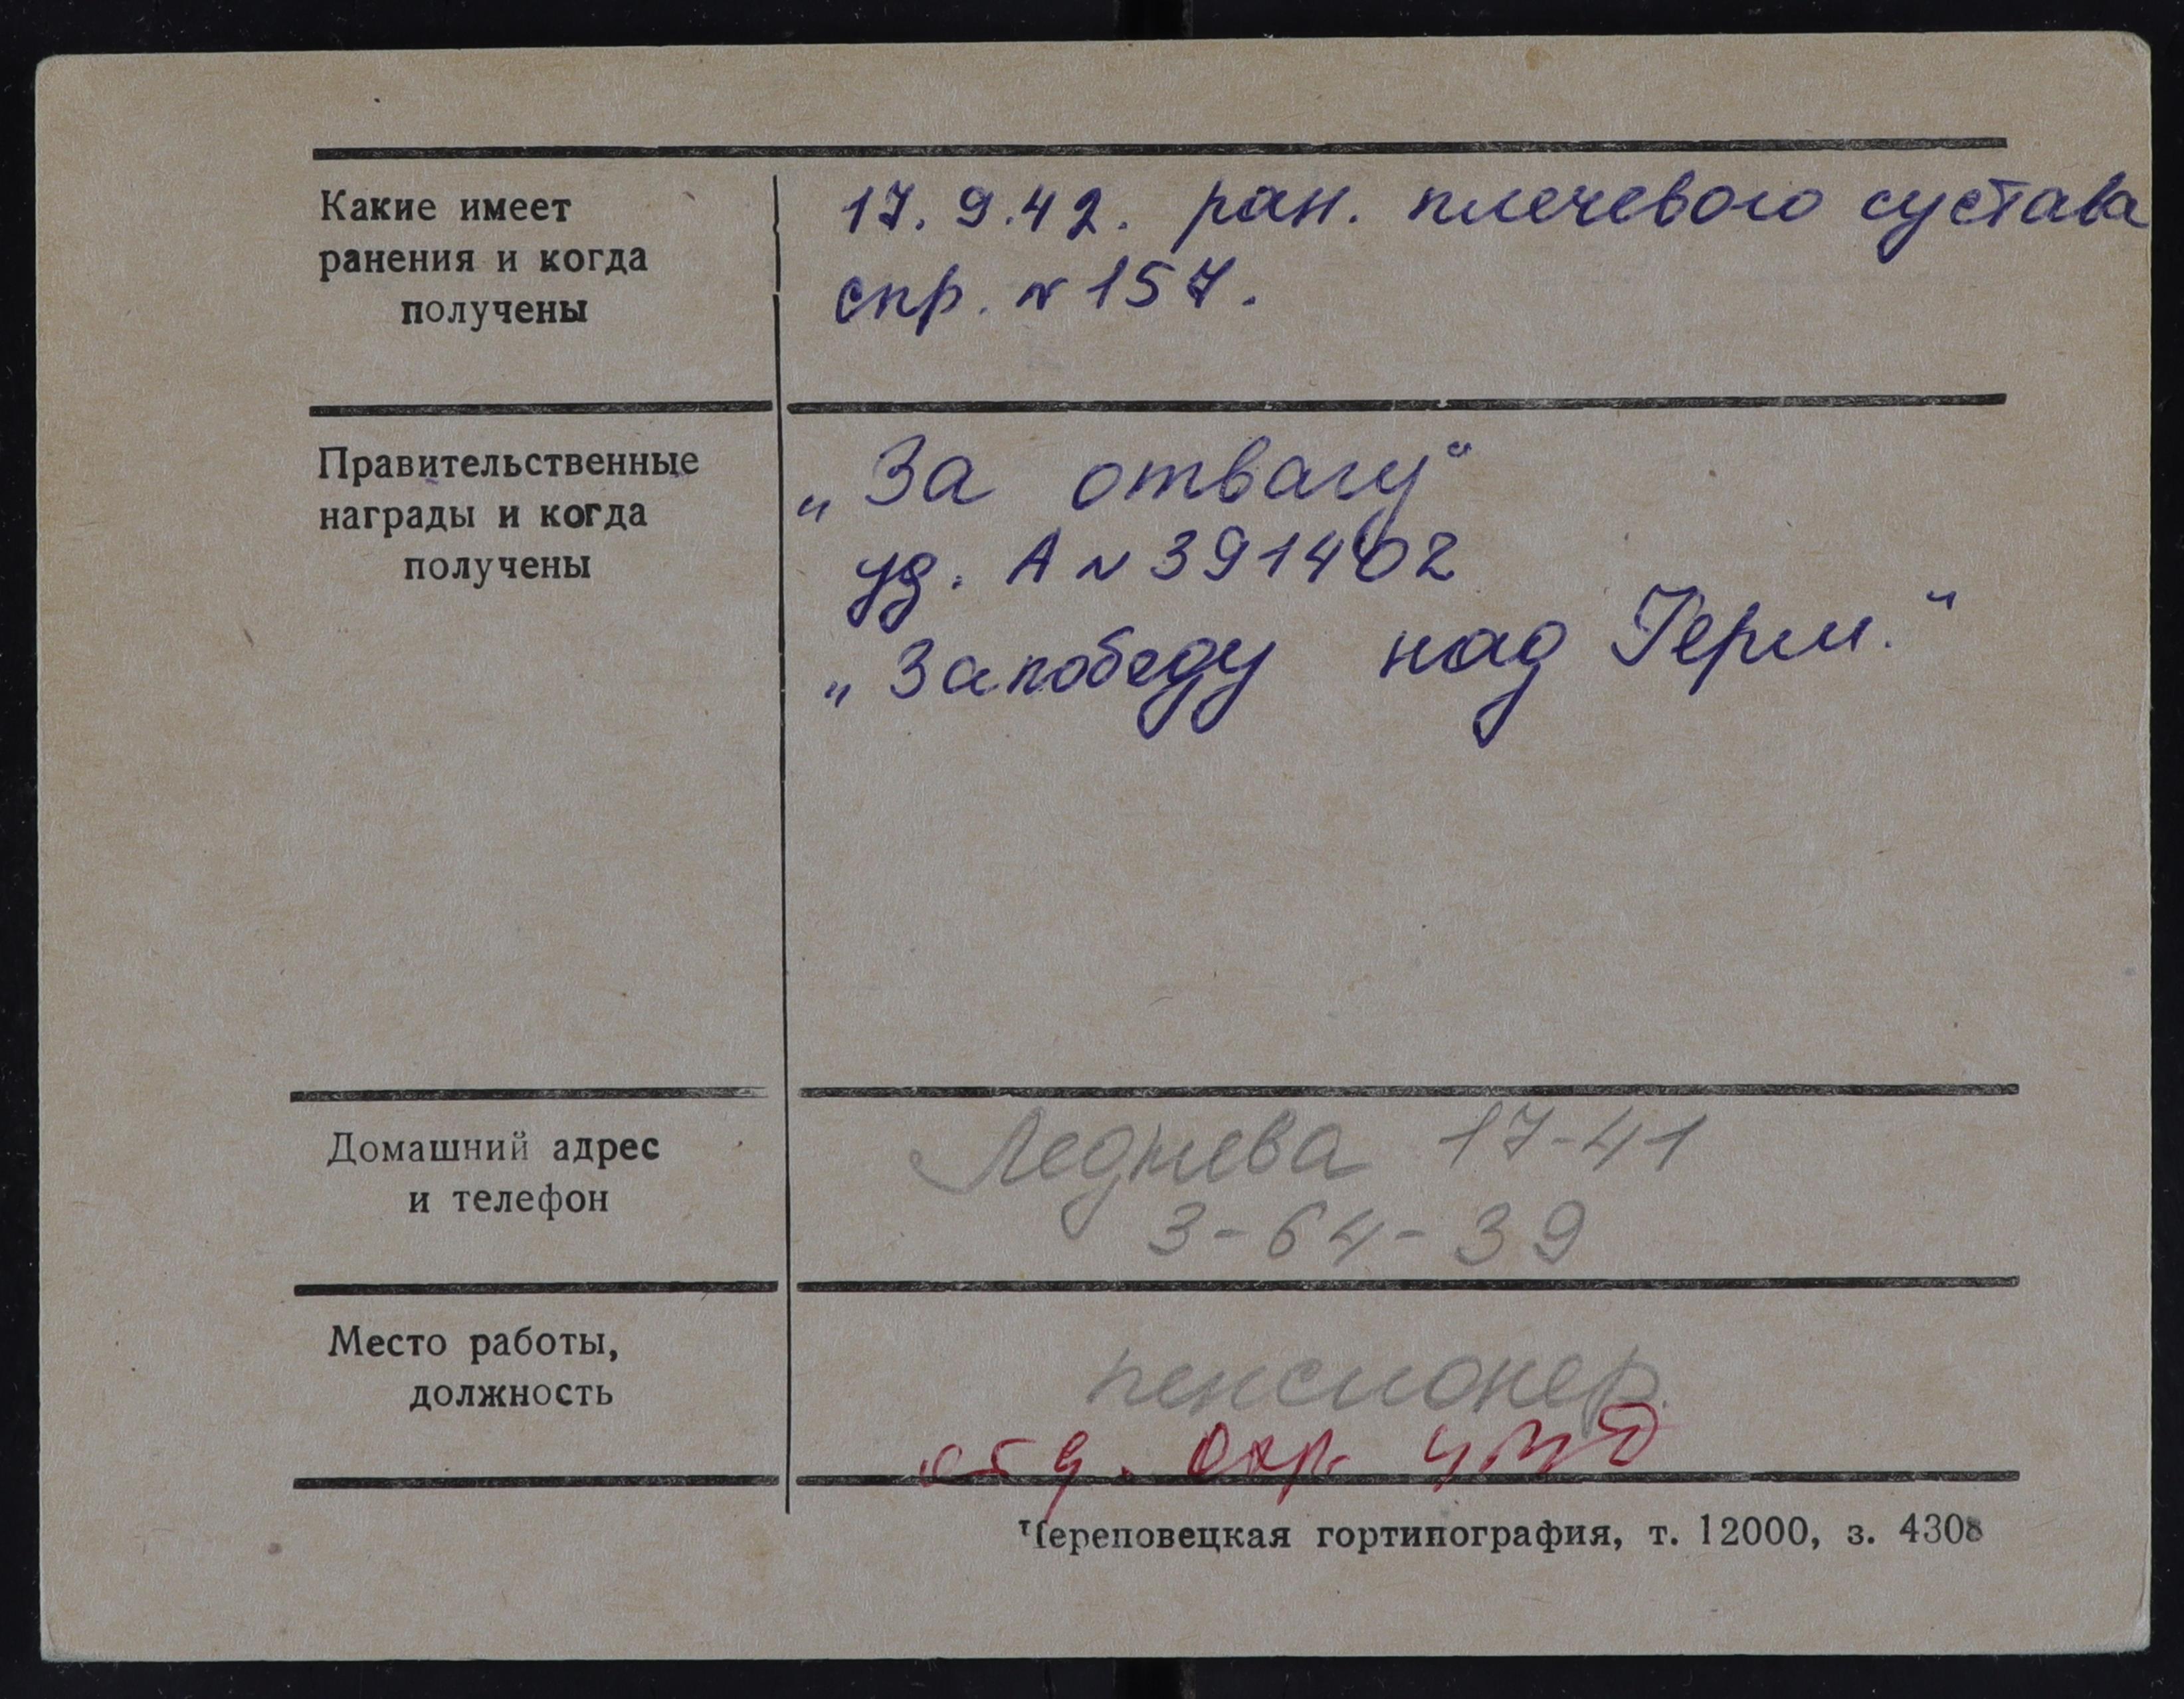 Какие имеет
ранения и когда
получены
17.9.42. ран. плечевого сустава
спр. N 157.
Правительственные
награды и когда
получены
„За отвагу“
уд. А N 391402
„За победу над Герм.“
Домашний адрес
и телефон
Леднева 17-41
3-64-39
Место работы,
должность
пенсионер.
отд. охр.
Череповецкая гортипография, т. 12000, з. 4308